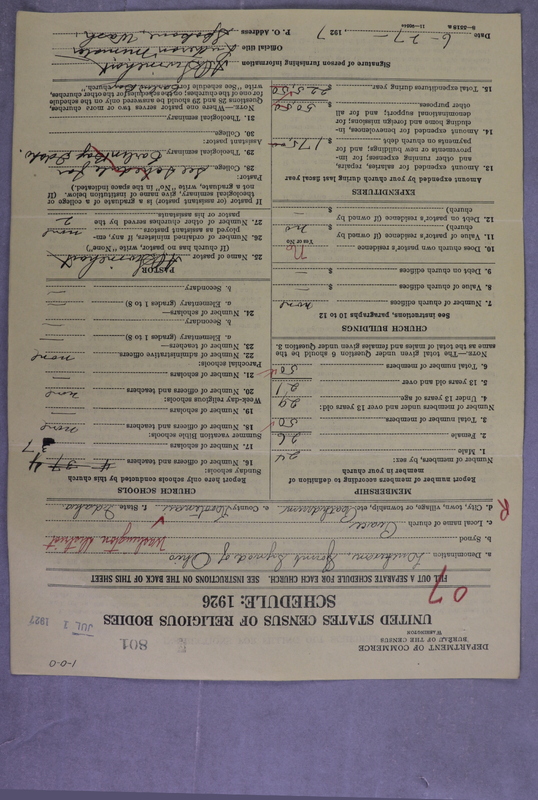 1-0-0
DEPARTMENT OF COMMERCE
BUREAU OF THE CENSUS
WASHINGTON
801
JUL 2 1927
UNITED STATES CENSUS OF RELIGIOUS BODIES
SCHEDULE: 1926
07
FILL OUT A SEPARATE SCHEDULE FOR EACH CHURCH. SEE INSTRUCTIONS ON THE BACK OF THIS SHEET
a. Denomination Lutheran, Joint Synod of Ohio
b. Synod Washington District
c. Local name of church Grace
d. City, town, village, or township, etc. e. County Kootenai f. State Idaho
R
MEMBERSHIP
Report number of members according to definition of
member in your church
Number of members, by sex:
1. Male 24
2. Female 26
3. Total number of members 50
Number of members under and over 13 years old:
4. Under 13 years of age 29
5. 13 years old and over 21
6. Total number of members 50
NOTE.—The total given under Question 6 should be the
same as the total of males and females given under Question 3.
CHURCH BUILDINGS
See instructions, paragraphs 10 to 12
7. Number of church edifices none
8. Value of church edifices $ —
9. Debt on church edifices $ —
10. Does own church pastor's residence no
Yes or No
11. Value of pastor's residence (if owned by
church) $ no
12. Debt on pastor's residence (if owned by
church) $ —
EXPENDITURES
Amount expended by your church during last fiscal year
13. Amount expended for salaries, repairs,
and other running expenses; for im-
provements or new buildings; and for
payments on church debt $ 175.00
14. Amount expended for benevolences, in-
cluding home and foreign missions; for
denominational support; and for all
other purposes 50.50
15. Total expenditures during year $ 225.50
CHURCH SCHOOLS
Report here only schools conducted by this church
Sunday schools:
16. Number of officers and teachers 4
17. Number of scholars 37
Summer vacation Bible schools:
18. Number of officers and teachers none
19. Number of scholars —
Week-day religious schools:
20. Number of officers and teachers none
21. Number of scholars —
Parochial schools:
22. Number of administrative officers none
23. Number of teachers—
a. Elementary (grades 1 to 8) —
b. Secondary —
24. Number of scholars—
a. Elementary (grades 1 to 8) —
b. Secondary —
PASTOR
25. Name of pastor
(If church has no pastor, write "None")
26. Number of ordained ministers, if any, em-
ployed as assistant pastors none
27. Number of other churches served by the
pastor or his assistants 2
If pastor (or assistant pastor) is a graduate of a college or
theological seminary, give name of institution below. (If
not a graduate, write "No" in the space indicated.)
Pastor:
28. College See Schedule for
29. Theological seminary Idaho.
Assistant pastor:
30. College
31. Theological seminary
NOTE.—Where one pastor serves two or more churches,
Questions 28 and 29 should be answered only on the schedule
for one of the churches; on the schedules for the other churches,
write "See schedule for church."
Signature of person furnishing information
Official title Lutheran Minister
P. O. Address Spokane, Wash.
Date 6-27- 1927